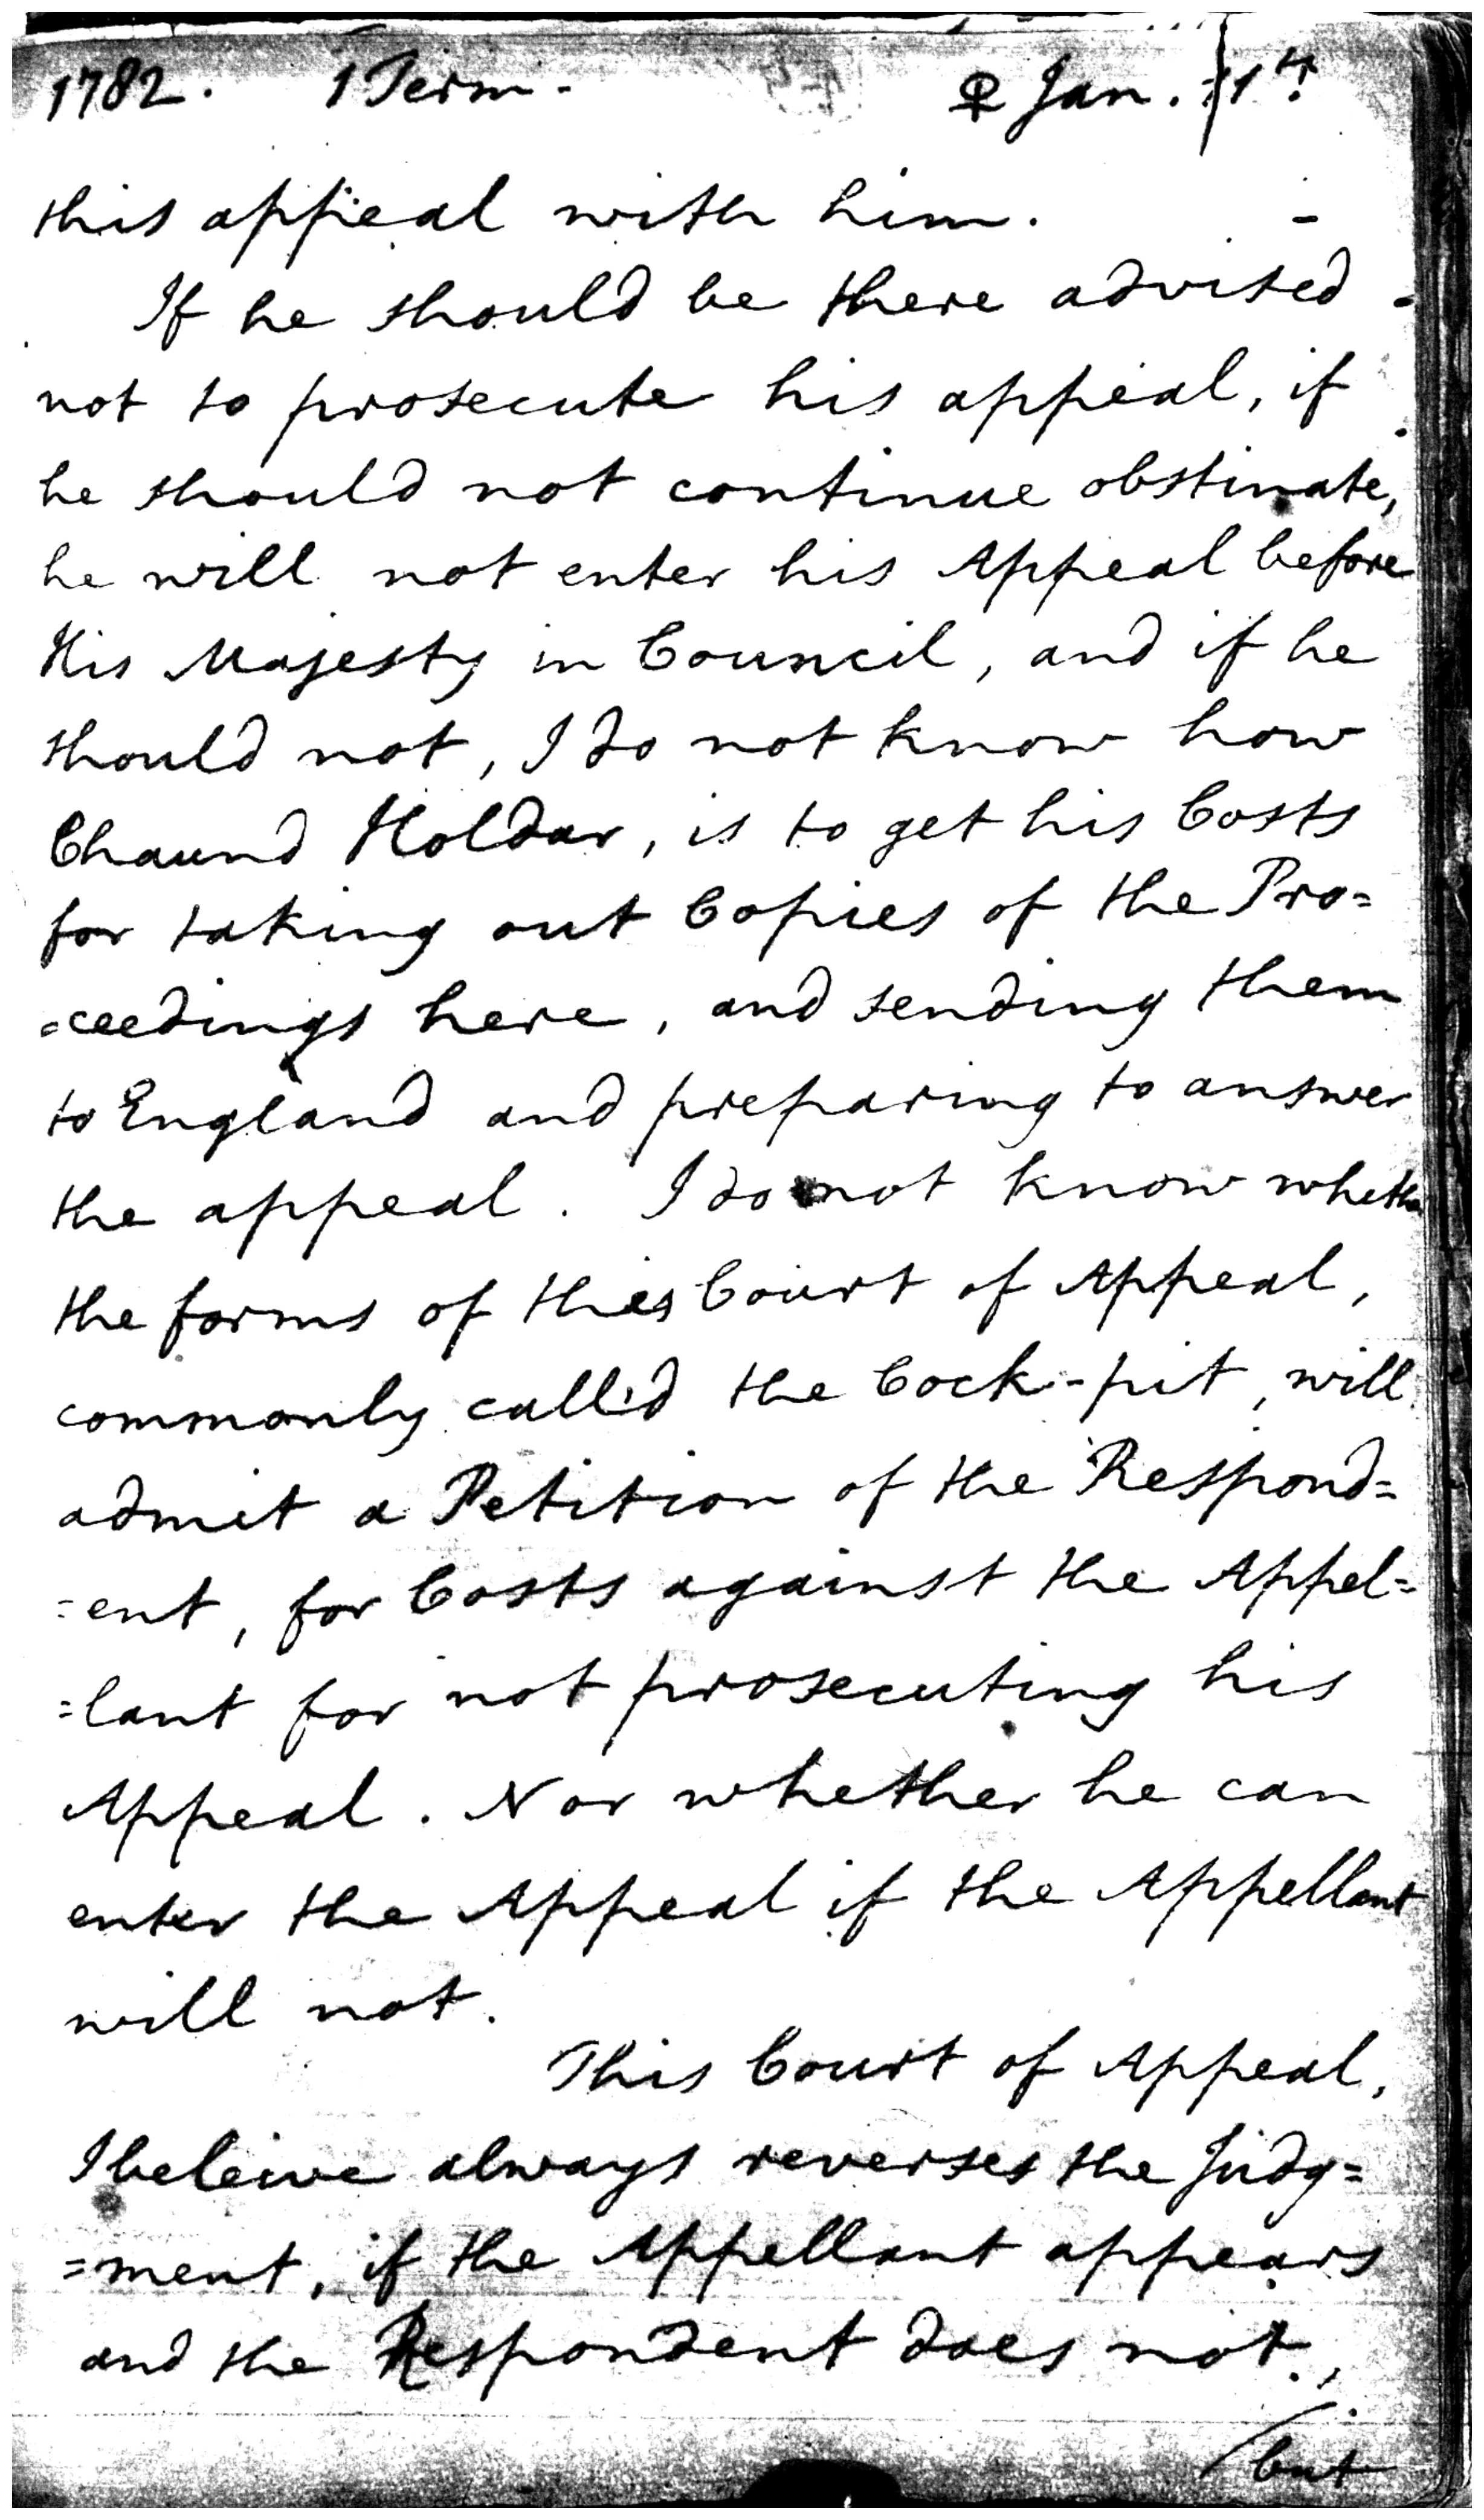 1782. 1 Term. ♀ Jan. 11th.
this appeal with him.
If he should be there advised
not to prosecute his appeal, if
he should not continue obstinate,
he will not enter his Appeal before
His Majesty in Council, and if he
should not, I do not know how
Chaund Holdar, is to get his Costs
for taking out Copies of the Pro=
=ceedings here, and sending them
to England and preparing to answer
the appeal. I do not know whether
the forms of this Court of Appeal,
commonly call'd the Cock-pit, will
admit a Petition of the Respond=
=ent, for Costs against the Appel=
=lant for not prosecuting his
Appeal. Nor whether he can
enter the Appeal if the Appellant
will not.
This Court of Appeal,
I beleive always reverses the Judg=
=ment, if the Appellant appears
and the Respondent does not,
but